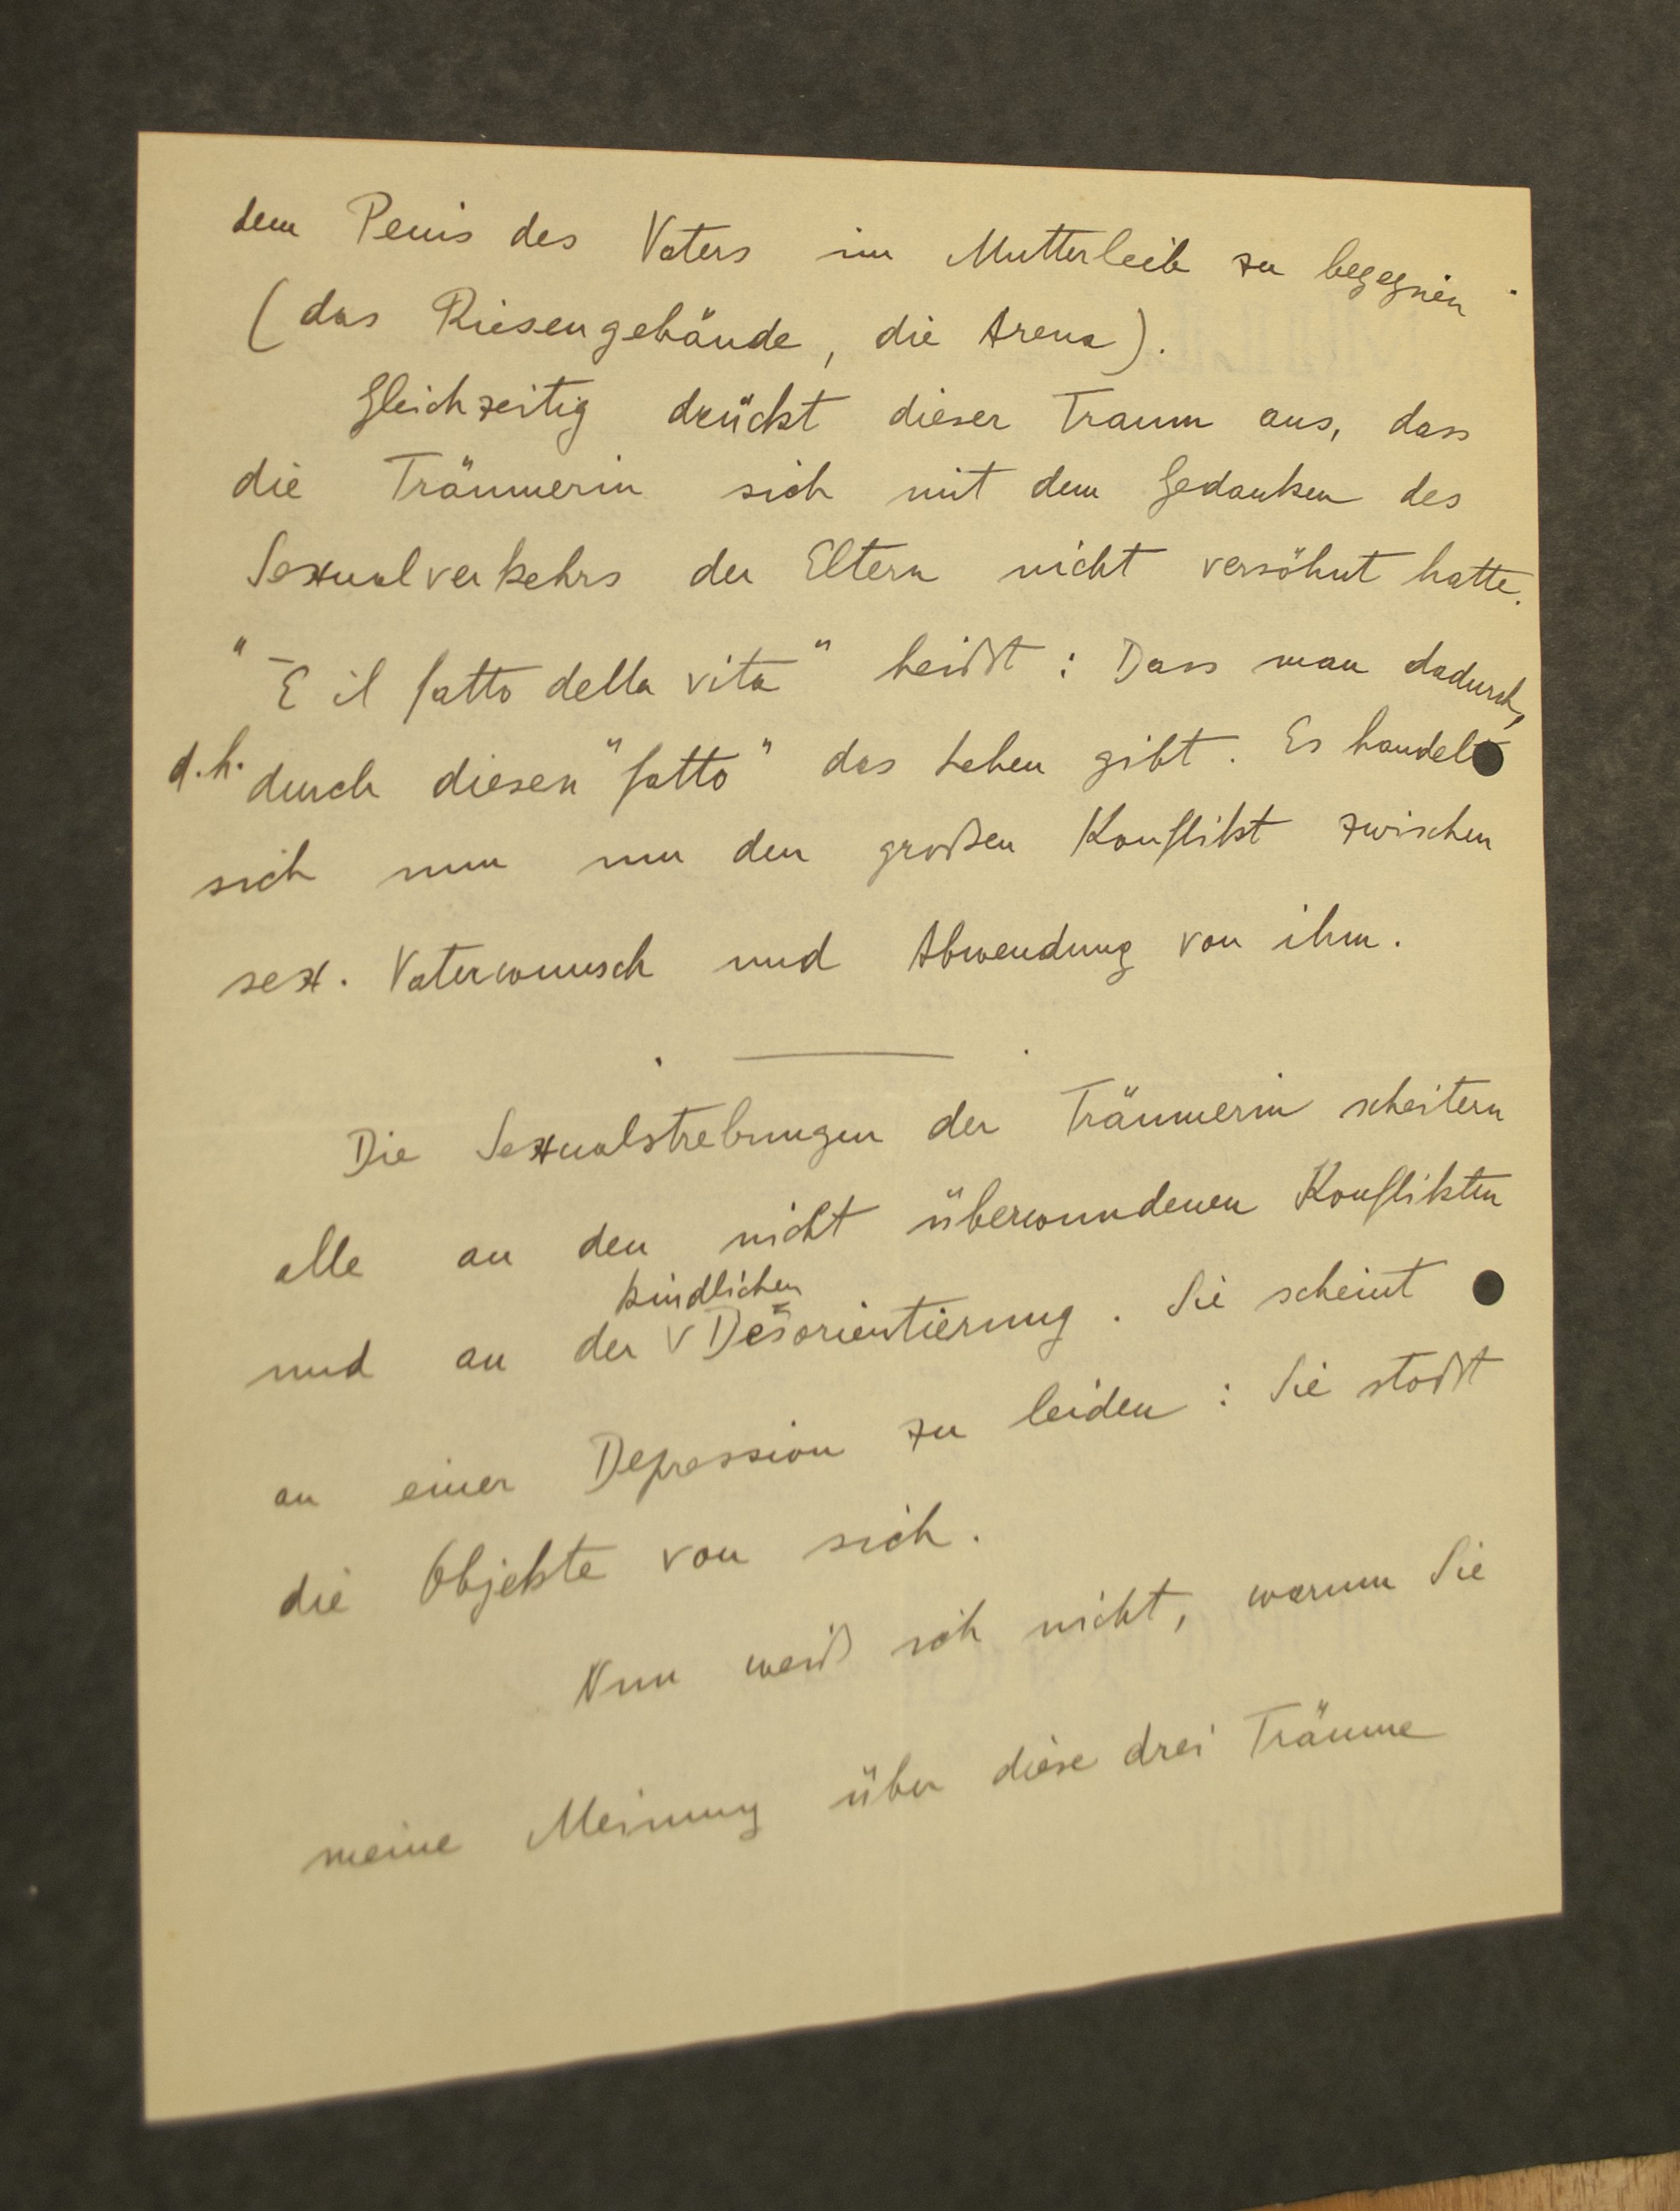 dem Penis des Vaters im Mutterleib zu begegnen
(das Riesengebäude, die Arena).
Gleichzeitig drückt dieser Traum aus, dass
die Träumerin sich mit dem Gedanken des
Sexualverkehrs der Eltern nicht versöhnt hatte.
"E il fatto della vita" heißt: Dass man dadurch,
d.h. durch diesen "fatto" das Leben gibt. Es handelt
sich nun um den großen Konflikt zwischen
sex. Vaterwunsch und Abwendung von ihm.
Die Sexualstrebungen der Träumerin scheitern
alle an den nicht überwundenen Konflikten
kindlichen
und an der Desorientierung. Sie scheint
an einer Depression zu leiden: Sie stoßt
die Objekte von sich.
Nun weiß ich nicht, warum Sie
meine Meinung über diese drei Träume